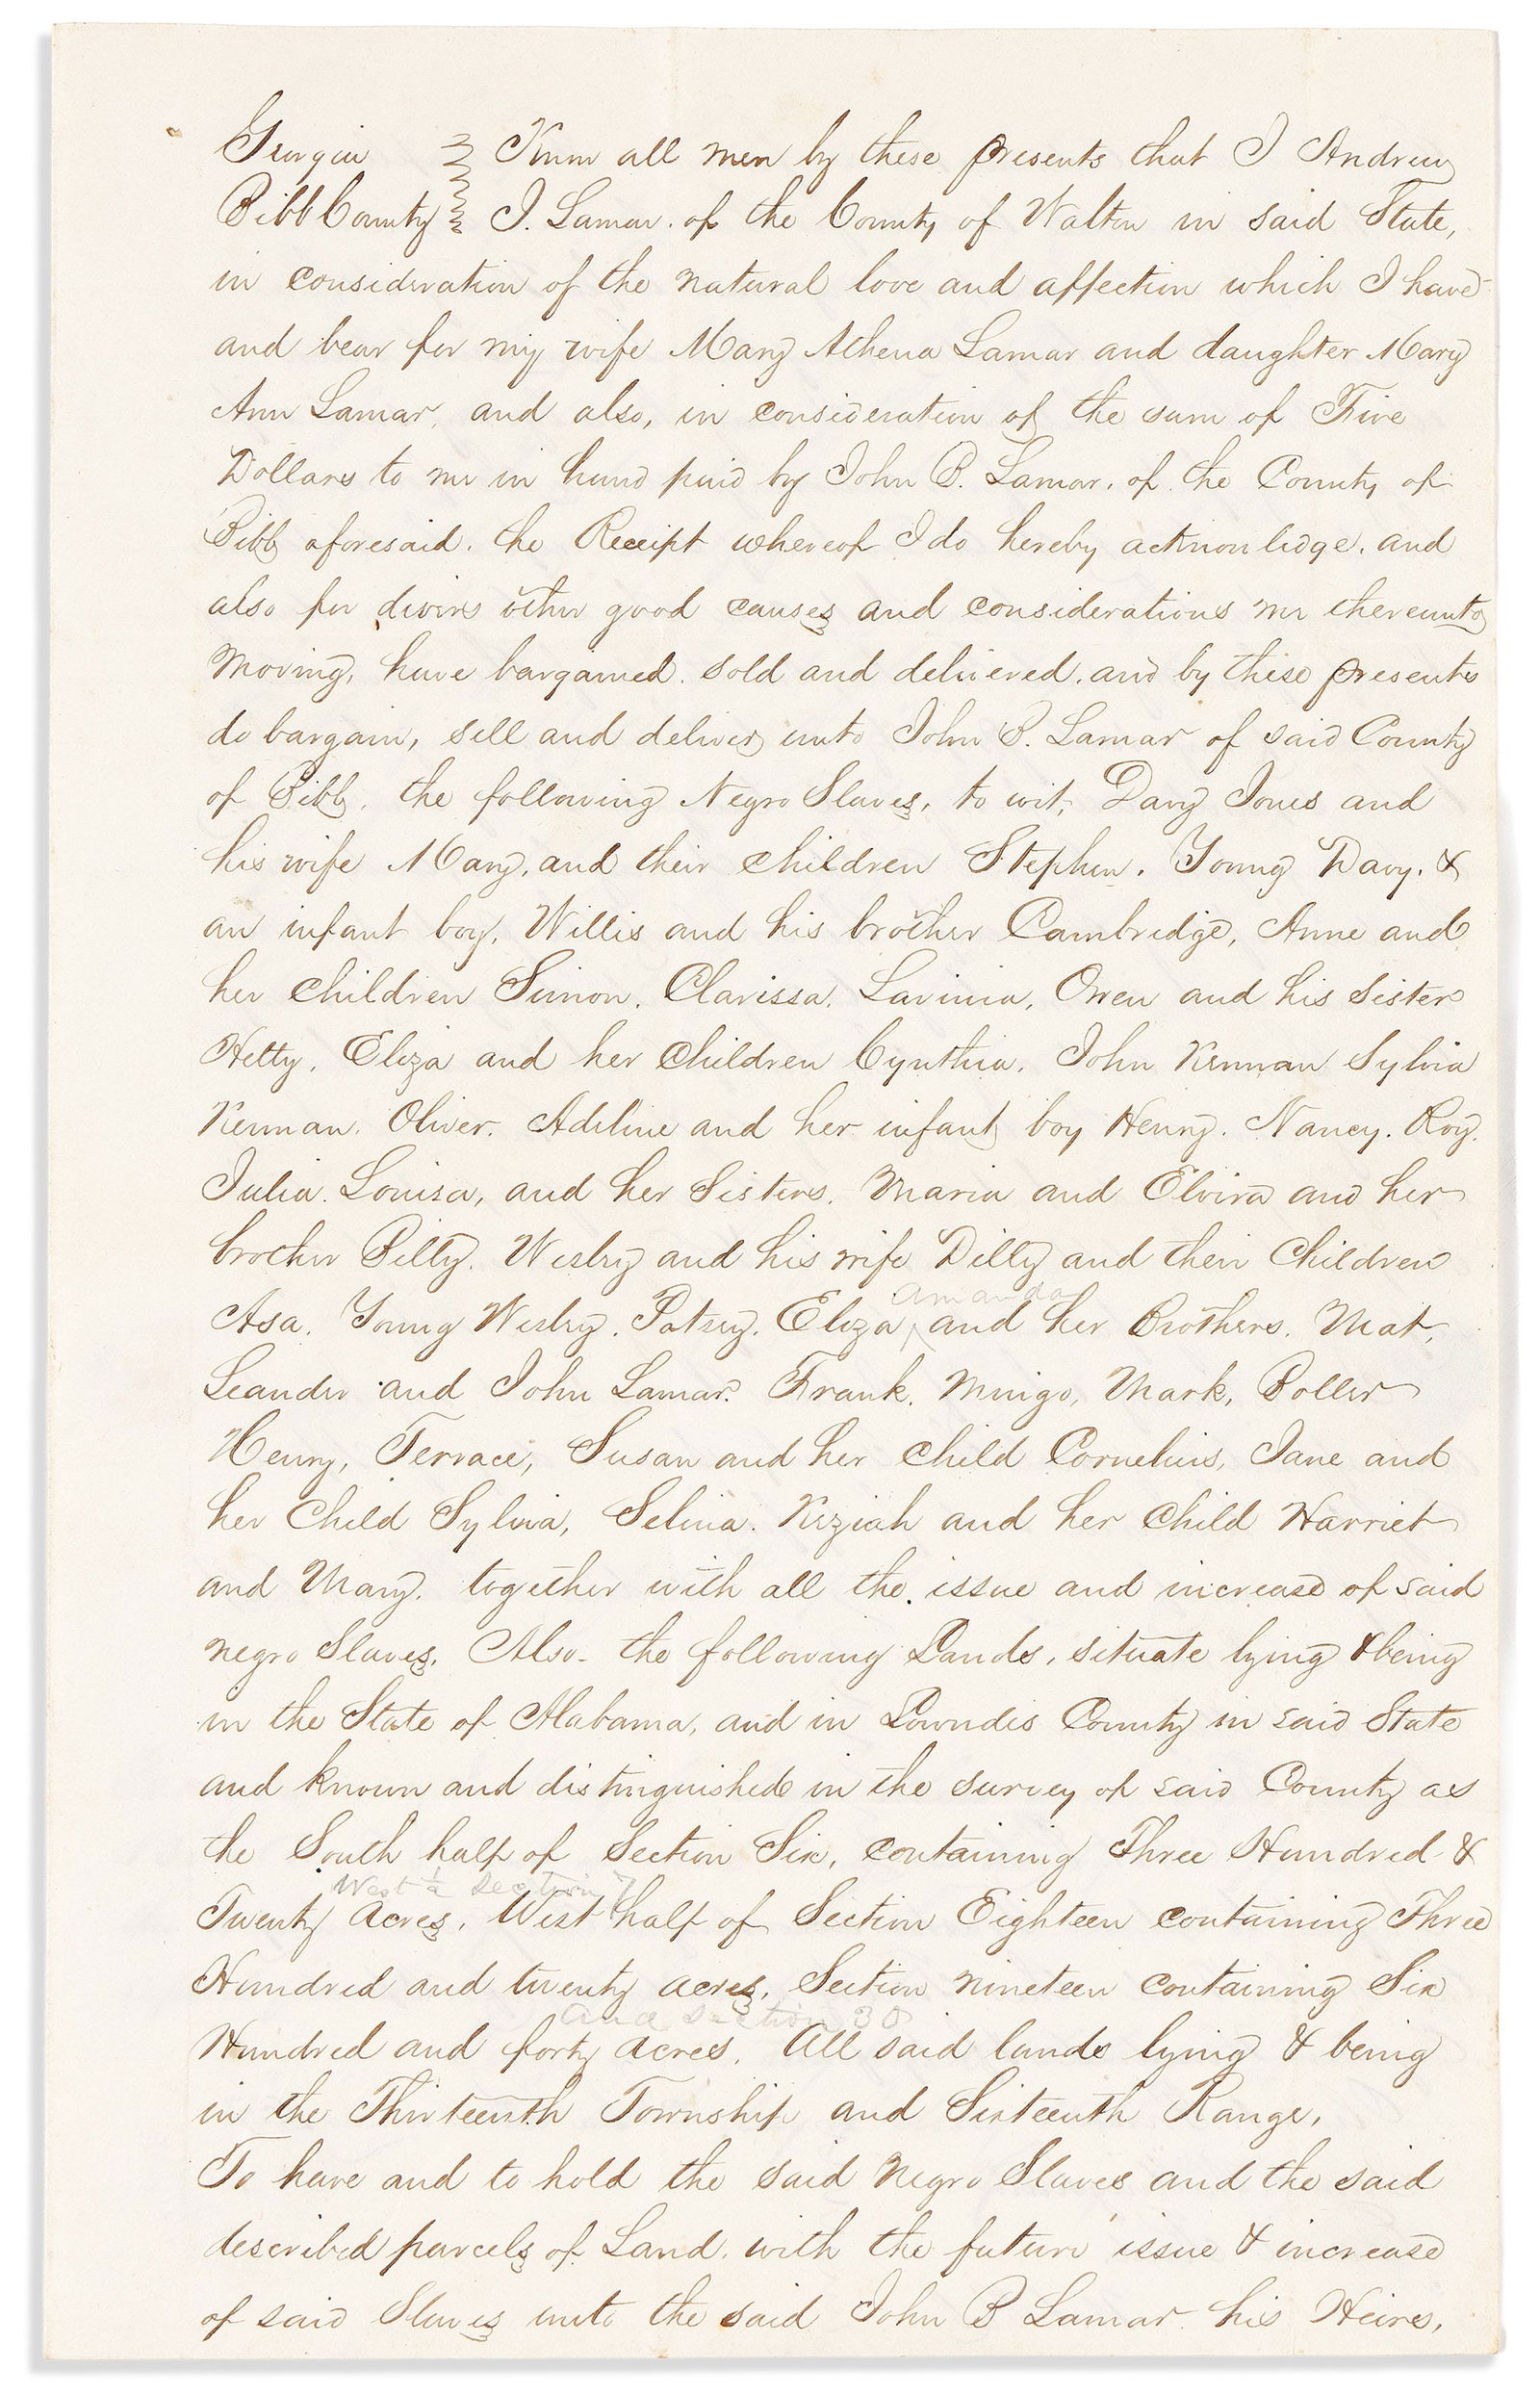 Georgia Know all men by these presents that I Andrew
Bibb County J. Lamar. of the County of Walton in said State,
in consideration of the natural love and affection which I have
and bear for my wife Mary Athena Lamar and daughter Mary
Ann Lamar, and also, in consideration of the sum of Five
Dollars to me in hand paid by John B. Lamar, of the County of
Bibb aforesaid. the Receipt whereof I do hereby acknowledge. and
also for divers other good causes and considerations me thereunto
moving, have bargained. sold and delivered. and by these presents
do bargain, sell and deliver unto John B. Lamar of said County
of Bibb, the following Negro Slaves, to wit, Davy Jones and
his wife Mary, and their children Stephen. Young Davy. &
an infant boy, Willis and his brother Cambridge, Anne and
her children Simon. Clarissa. Lavinia, Owen and his Sister
Hetty. Eliza and her children Cynthia. John Kennan Sylvia
Kennan. Oliver. Adeline and her infant boy Henry. Nancy. Roy.
Julia. Louisa, and her Sisters. Maria and Elvira and her
brother Billy. Wesley and his wife Dilly and their Children
Amanda
Asa. Young Wesley. Patsey. Eliza, and her Brothers. Mat,
Leander and John Lamar. Frank. Mingo, Mark, Boller
Henry, Terrace, Susan and her child Cornelius, Jane and
her Child Sylvia, Selina. Keziah and her child Harriet
and Mary. together with all the issue and increase of said
negro Slaves. Also. the following Lands, situate lying & being
in the State of Alabama, and in Lowndes County in said State
and known and distinguished in the survey of said County as
the South half of Section Six, containing Three Hundred &
West ½ Section 7
Twenty Acres, West half of Section Eighteen containing Three
Hundred and twenty acres, Section nineteen containing Six
and Section 30
Hundred and forty acres. All said lands lying & being
in the Thirteenth Township and Sixteenth Range,
To have and to hold the said Negro Slaves and the said
described parcels of Land. with the future issue & increase
of said Slaves unto the said John B Lamar his Heirs,